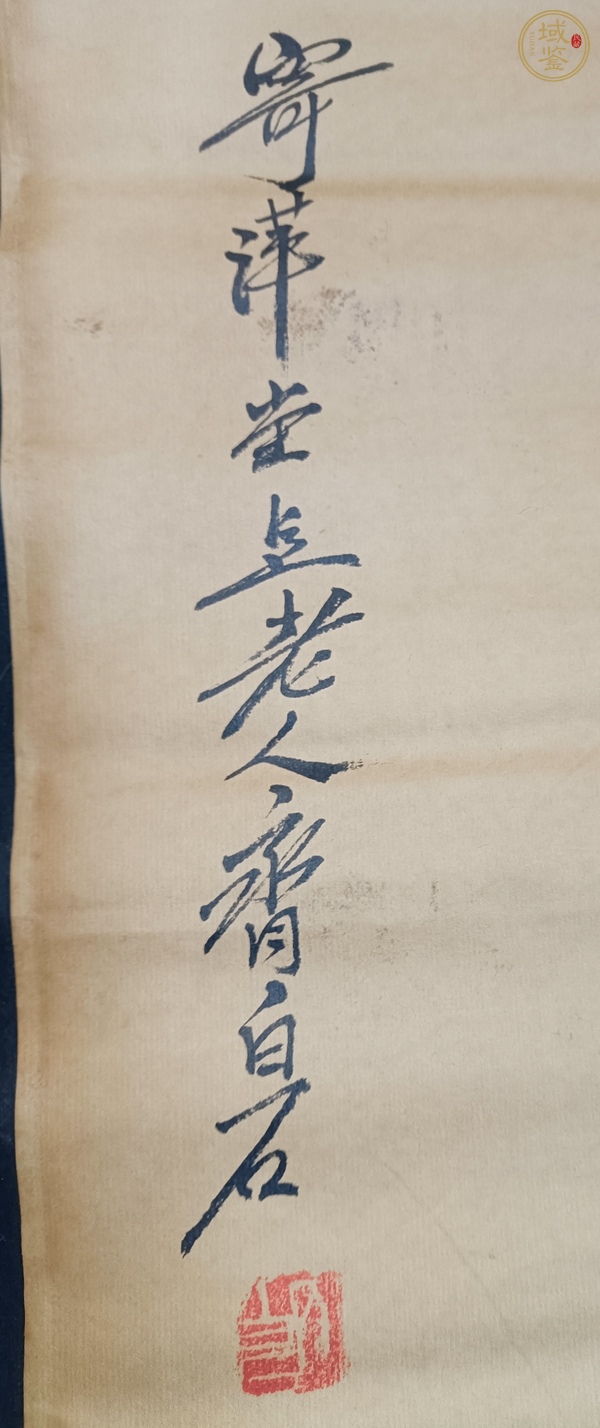 寄萍堂上老人齊白石
域鉴